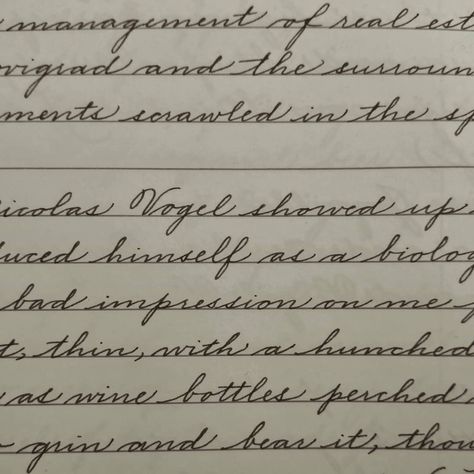 management of real est
ovigrad and the surroun
ments scrawled in the sp
icolas Vogel showed up
duced himself as a biolog
bad impression on me f
t, thin, with a hunched
as wine bottles perched
grin and bear it, thou